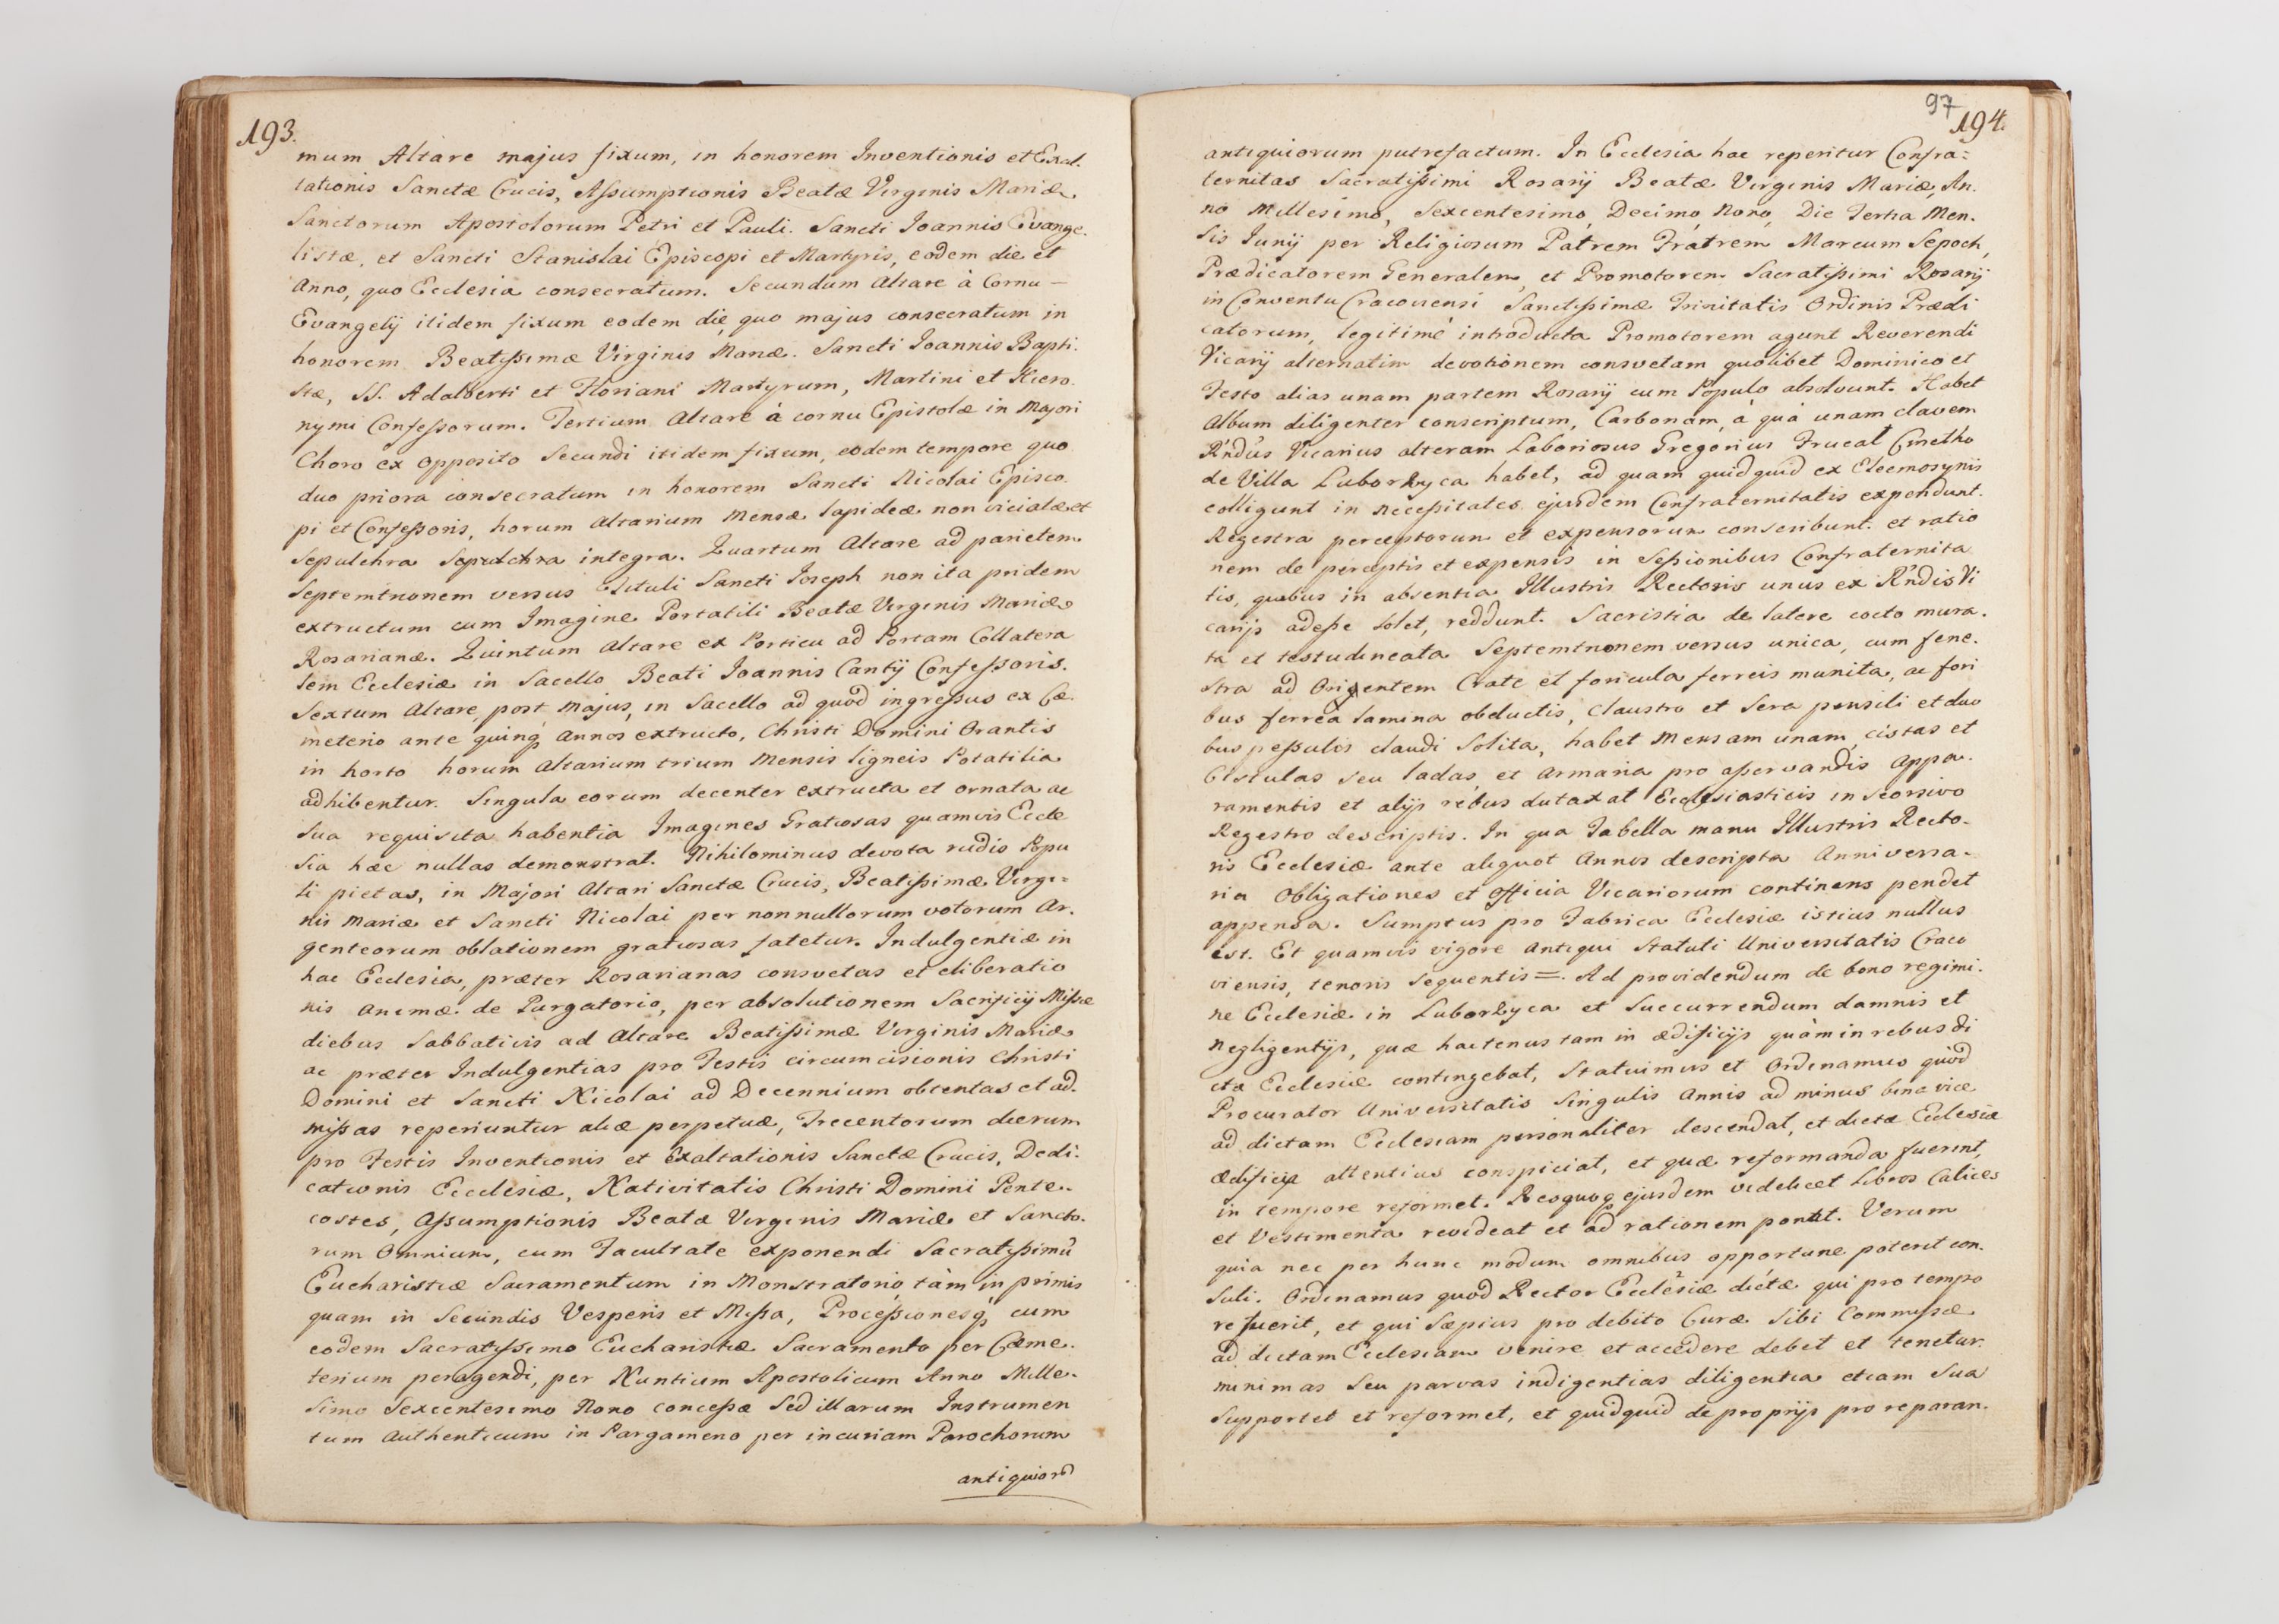 193.
mum Altare majus fixum, in honorem Inventionis et Exal.
tationis Sanctæ Crucis, Assumptionis Beatæ Virginis Mariæ
Sanctorum Apostolorum Petri et Pauli. Sancti Joannis Evange.
listæ, et Sancti Stanislai Episcopi et Martyris, eodem die et
Anno, quo Ecclesia consecratum. Secundum Altare à Cornu —
Evangelij itidem fixum eodem die, quo majus consecratum in
honorem Beatissimæ Virginis Mariæ. Sancti Joannis Bapti.
stæ, SS. Adalberti et Floriani Martyrum, Martini et Hiero.
nymi Confessorum. Tertium Altare à cornu Epistolæ in Majori
Choro ex opposito Secundi itidem fixum, eodem tempore quo
duo priora consecratum in honorem Sancti Nicolai Episco.
pi et Confessoris, horum Altarium Mensæ lapideæ non viciatæ et
Sepulchra Sepulchra integra. Quartum Altare ad parietem
Septemtrionem versus Tituli Sancti Joseph non ita pridem
extructum cum Imagine Portatili Beatæ Virginis Mariæ
Rosarianæ. Quintum Altare ex Porticu ad Portam Collatera
lem Ecclesiæ in Sacello Beati Joannis Cantij Confessoris.
Sextum Altare, post Majus, in Sacello ad quod ingressus ex Cæ.
meterio ante quinq annos extructo, Christi Domini Orantis
in horto horum Altarium trium Mensis ligneis Potatilia
adhibentur. Singula eorum decenter extructa et ornata ac
sua requisita habentia Imagines Gratiosas quamvis Eccle
sia hæc nullas demonstrat. Nihilominus devota rudis Popu
li pietas, in Majori Altari Sanctæ Crucis, Beatissimæ Virgi=
nis Mariæ et Sancti Nicolai per nonnullorum votorum Ar.
genteorum oblationem gratiosas fatetur. Indulgentiæ in
hac Ecclesia, præter Rosarianas consvetas et eliberatio
nis Animæ de Purgatorio, per absolutionem Sacrificij Missæ
diebus Sabbativis ad Altare Beatissimæ Virginis Mariæ
ac præter Indulgentias pro Festis circumcisionis Christi
Domini et Sancti Nicolai ad Decennium obtentas et ad.
missas reperiuntur aliæ perpetuæ, Trecentorum dierum
pro Festis Inventionis et Exaltationis Sanctæ Crucis, Dedi.
cationis Ecclesiæ, Nativitatis Christi Domini Pente.
costes, Assumptionis Beatæ Virginis Mariæ et Sancto.
rum Omnium, cum Facultate exponendi Sacratissimũ
Eucharistiæ Sacramentum in Monstratorio, tàm in primis
quam in Secundis Vesperis et Missa, Processionesq cum
eodem Sacratissimo Eucharistiæ Sacramento per Cæme.
terium peragendi, per Nuntium Apostolicum Anno Mille.
simo Sexcentesimo Nono concessæ Sed illarum Instrumen
tum Authenticum in Pargameno per incuriam Parochorum
antiquiorũ
97
194.
antiquiorum putrefactum. In Ecclesia hac reperitur Confra=
ternitas Sacratissimi Rosarij Beatæ Virginis Mariæ, An.
no Millesimo, Sexcentesimo, Decimo Nono, Die Tertia Men.
sis Junij per Religiosum Patrem Fratrem Marcum Sepoch,
Prædicatorem Generalem, et Promotorem Sacratissimi Rosarij
in Conventu Cracoviensi Sanctissimæ Trinitatis Ordinis Prædi
catorum, legitimè introducta Promotorem agunt Reverendi
Vicarij alternatim devotionem consvetam quolibet Dominico et
Festo alias unam partem Rosarij cum Populo absolvunt. Habet
Album diligenter conscriptum, Carbonam, à quà unam clavem
Rndus Vicarius alteram Laboriosus Gregorius Trucal Cmetho
de Villa Luborzyca habet, ad quam quidquid ex Eleemosynis
colligunt in necessitates ejusdem Confraternitatis expendunt.
Regestra perceptorum et expensorum conscribunt. et ratio
nem de perceptis et expensis in Sessionibus Confraternita
tis, quibus in absentia Illustris Rectoris unus ex Rndis Vi
carijs adesse solet, reddunt. Sacristia de latere cocto mura.
ta et testudineata Septemtrionem versus unica, cum fene.
stra ad Orientem Crate et foricula ferreis munita, ac fori
bus ferrea lamina obductis, claustro et Sera pensili et duo
bus pessulis claudi solita, habet Mensam unam, cistas et
Cistulas seu ladas, et Armaria pro asservandis Appa.
ramentis et alijs rebus dutaxat Ecclesiasticis in Seorsivo
Regestro descriptis. In qua Tabella manu Illustris Recto.
ris Ecclesiæ ante aliquot Annos descripta Anniversa.
ria Obligationes et Officia Vicariorum continens pendet
appensa. Sumptus pro Fabrica Ecclesiæ istius nullus
est. Et quamvis vigore Antiqui Statuti Universitatis Craco
viensis, tenoris Sequentis =. Ad providendum de bono regimi.
ne Ecclesiæ in Luborzyca et Succurrendum damnis et
negligentijs, quæ hactenus tam in ædificijs quàm in rebus di
ctæ Ecclesiæ contingebat, Statuimus et Ordinamus quòd
Procurator Universitatis Singulis Annis ad minus bina vice
ad dictam Ecclesiam personaliter descendat, et dictæ Ecclesiæ
ædificia attentius conspiciat, et quæ reformanda fuerint,
in tempore reformet. Resquoq ejusdem videlicet Libros Calices
et Vestimenta revideat et ad rationem ponat. Verum
quia nec per hunc modum omnibus opportune poterit con.
suli. Ordinamus quod Rector Ecclesiæ dictæ qui pro tempo
re fuerit, et qui sæpius pro debito Curæ Sibi Commissæ
ad dictam Ecclesiam venire et accedere debet et tenetur.
minimas seu parvas indigentias diligentia etiam sua
Supportet et reformet, et quidquid de proprijs pro reparan.